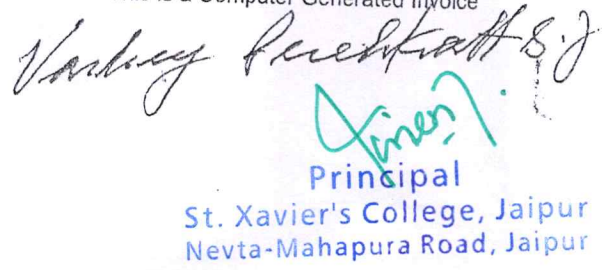 is a Computer Generated Invoice
Varkey Perekkatt S.J
Principal
St. Xavier's College, Jaipur
Nevta-Mahapura Road, Jaipur